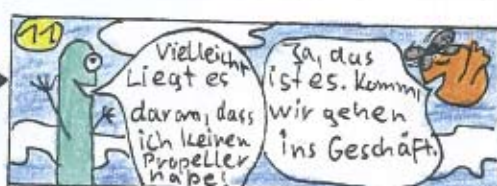 11
Vielleicht
Liegt es
daran, dass
ich keinen
Propeller
habe!
Ja, das
ist es. Komm,
wir gehen
ins Geschäft.